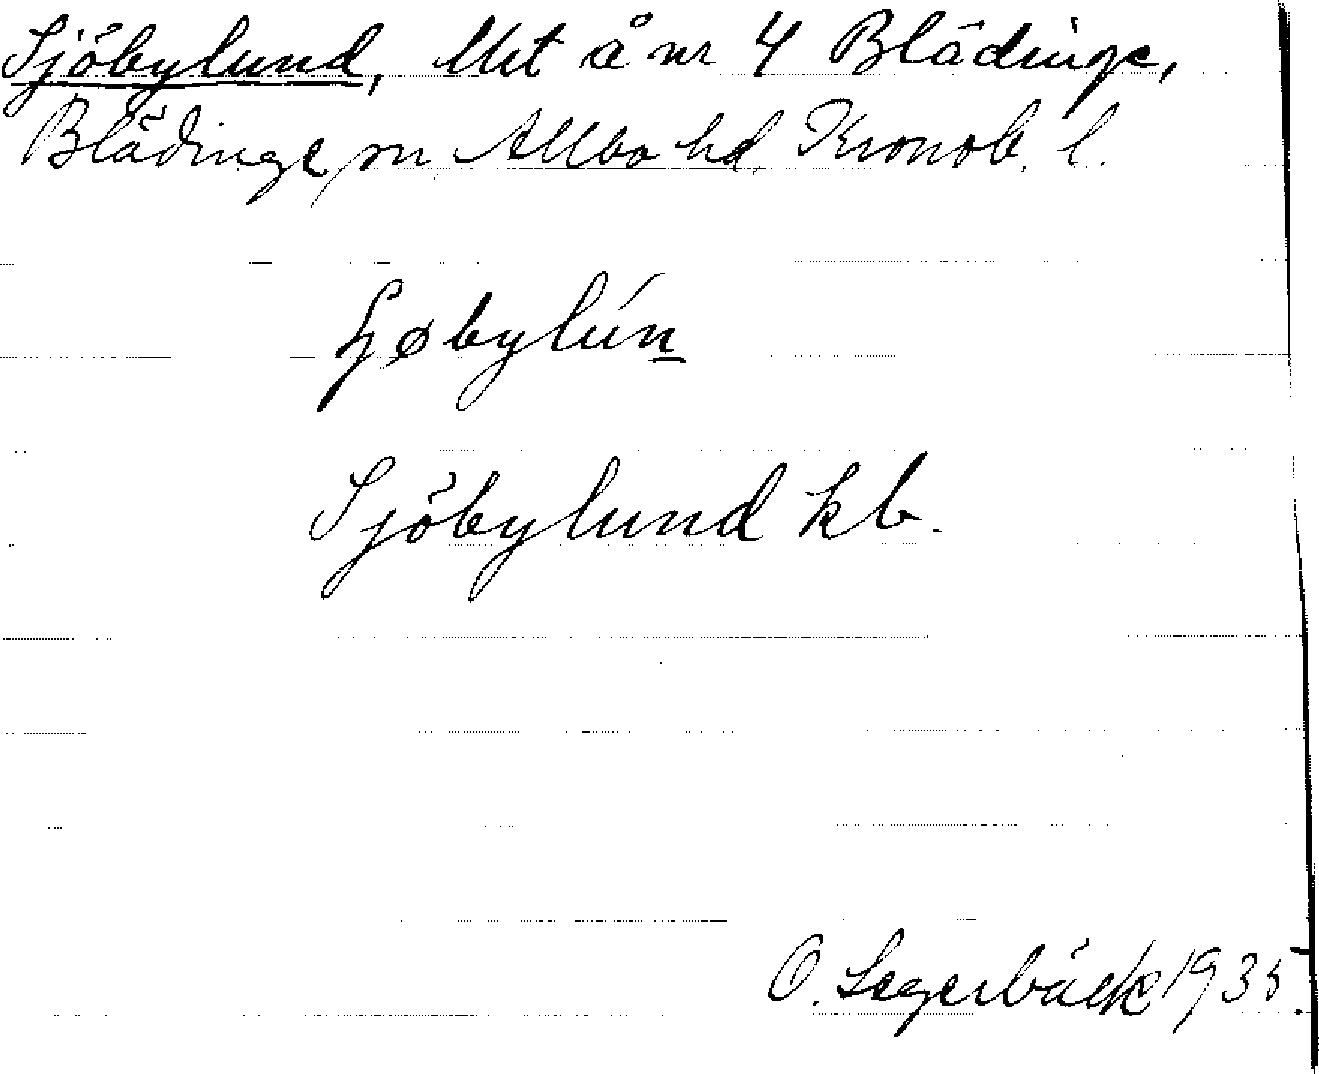 Sjöbylund, Utet å nr 4 Blädinge,
Blädinge sn Allbo hd Kronob. l.
Sjöbylund kb.
O. Segerbäck 1935.